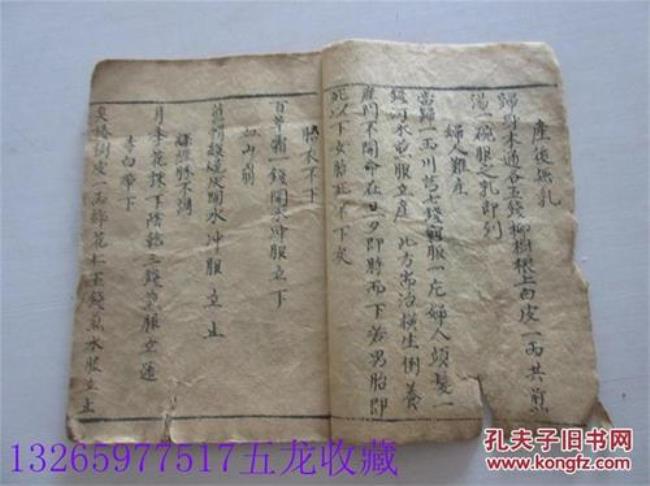 產後無乳
歸身木通各五錢柳樹根上白皮一両共煎
湯一碗服之乳即到
婦人難產
當歸一両川芎七錢龜服一左婦人頭髮一
錢河水煎服立產 此方常治橫生倒養
產門不開命在旦夕即時而下若男胎即
死以下女胎死不下矣
胎衣不下
百草霜一錢開水沖服立下
血山崩
皮開水沖服立止
經脉不調
月季花 下陰乾三錢煎服立通
赤白帶下
椿樹皮一両 花仁五錢煎水服立止
13265977517五龙收藏
孔夫子旧书网
www.kongfz.com